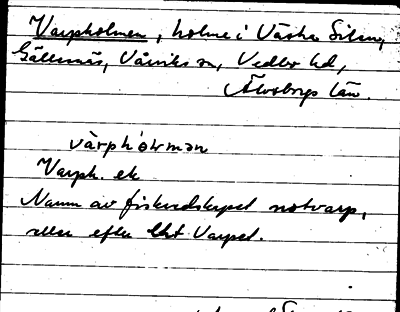 Varpholmen, holme i Västra Silen,
Gällesnäs, Vårviks sn, Vedbo hd,
Älvsborgs län.
varph
Varph. ek
Namn av fiskeredskapet notvarp,
eller efter Varpet.